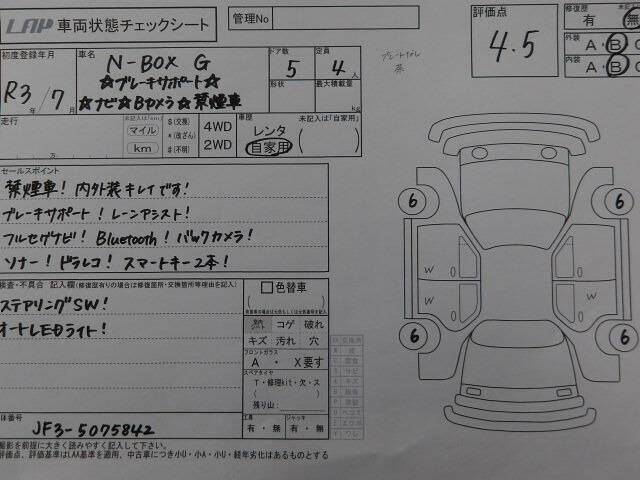 LAP 車両状態チェックシート
管理No
評価点
4.5
修復歴
有 無
外装 A・B
内装 A・B
初度登録年月
R3年/7月
車名
N-BOX G
☆ブレーキサポート☆
☆ナビ☆Bカメラ☆禁煙車
ドア数
5
定員
4人
形状
最大積載量
kg
走行
未記入は「km」
マイル
km
万
$(交換)
*(改ざん)
#(不明)
4WD
2WD
車歴
未記入は「自家用」
レンタ
自家用
セールスポイント
禁煙車! 内外装キレイです!
ブレーキサポート! レーンアシスト!
フルセグナビ! Bluetooth! バックカメラ!
ソナー! ドラレコ! スマートキー2本!
検査・不具合 記入欄(修復歴有りの場合は修復箇所・交換箇所等理由を記入)
ステアリングSW!
オートLEDライト!
色替車
コゲ 破れ
キズ 汚れ 穴
フロントガラス
A ・ X要す
スペアタイヤ
T・修理kit・欠・ス
残り山:
工具
有・無
ジャッキ
有・無
体番号
JF3-5075842
撮影を前提に大きく読みやすく記入して下さい。
評価点、評価基準はLAA基準を適用、中古車につき小U・小A・小U・経年劣化はあるものとする
6
6
W
W
W
6
6